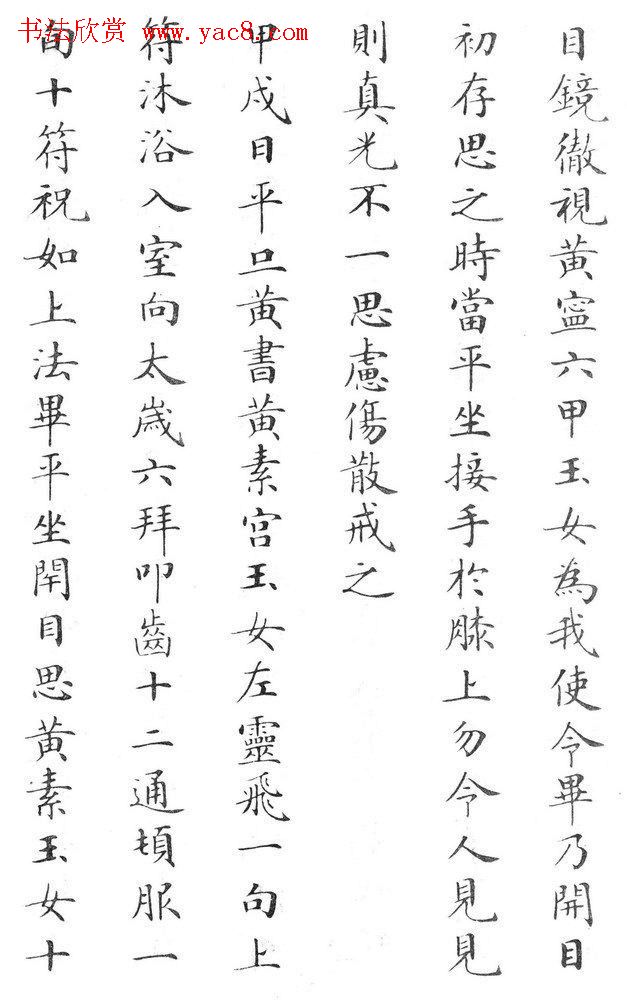 书法欣赏 www.yac8.com
目鏡徹視黃寧六甲玉女為我使令畢乃開目
初存思之時當平坐接手於膝上勿令人見見
則真光不一思慮傷散戒之
甲戌日平旦黃書黃素宫玉女左靈飛一旬上
符沐浴入室向太歲六拜叩齒十二通頓服一
旬十符祝如上法畢平坐閉目思黃素玉女十